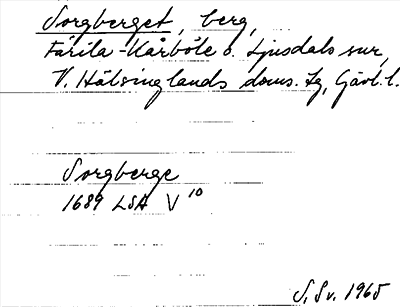 Sorgberget, berg,
Färila-Kårböle o. Ljusdals sn,
V. Hälsinglands doms. Lg, Gävl. l.
Sorgberge
1689 LSA V 10
S. Sv. 1965